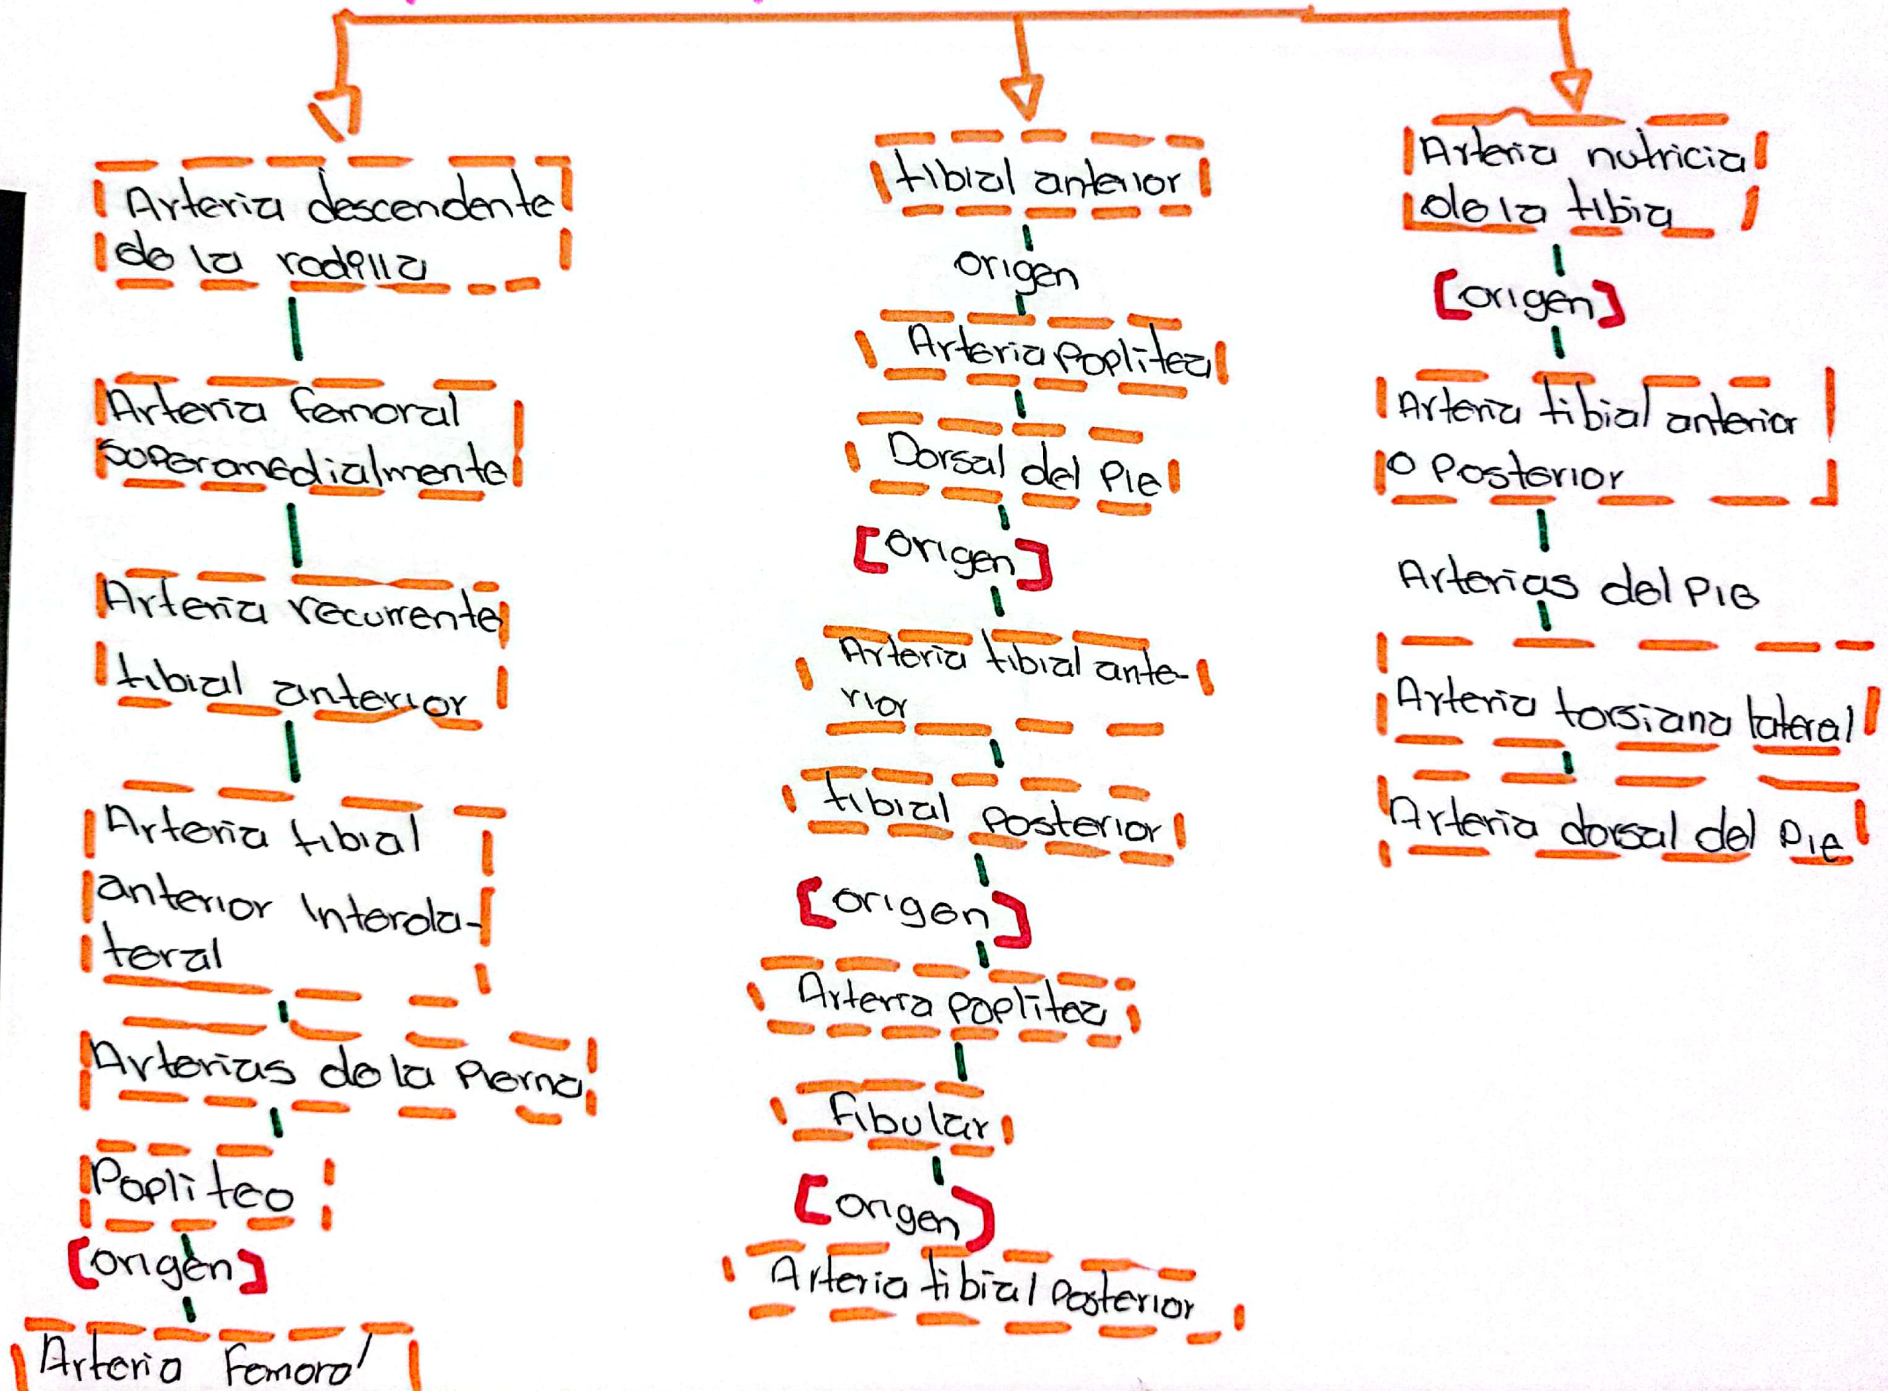 Arteria descendente
de la rodilla
Arteria femoral
soperomedialmente
Arteria recurrente
tibial anterior
Arteria tibial
anterior Interola-
teral
Arterias de la Pierna
Popliteo
[origen]
Arteria Femoral
tibial anterior
origen
Arteria Poplitea
Dorsal del Pie
[origen]
Arteria tibial ante-
rior
tibial Posterior
[origen]
Arteria poplitea
Fibular
[origen]
Arteria tibial Posterior
Arteria nutricia
de la tibia
[origen]
Arteria tibial anterior
o Posterior
Arterias del Pie
Arteria torsiana lateral
Arteria dorsal del Pie